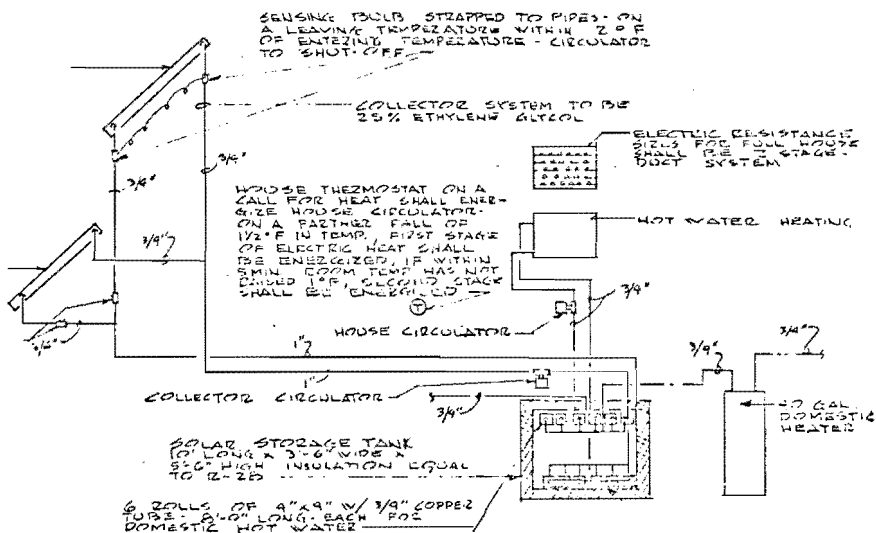 SENSING BULB STRAPPED TO PIPES - ON
A LEAVING TEMPERATURE WITHIN 2°F
OF ENTERING TEMPERATURE - CIRCULATOR
TO SHUT-OFF
COLLECTOR SYSTEM TO BE
25% ETHYLENE GLYCOL
3/4"
3/4"
ELECTRIC RESISTANCE
SIZES FOR FULL HOUSE
SHALL BE 2 STAGE-
DUCT SYSTEM
HOUSE THERMOSTAT ON A
CALL FOR HEAT SHALL ENER-
GIZE HOUSE CIRCULATOR-
ON A FARTHER FALL OF
1½°F IN TEMP., FIRST STAGE
OF ELECTRIC HEAT SHALL
BE ENERGIZED, IF WITHIN
5MIN. ROOM TEMP HAS NOT
RAISED 1°F, SECOND STAGE
SHALL BE ENERGIZED
HOT WATER HEATING
3/4"
T
3/4"
HOUSE CIRCULATOR
3/4"
3/4"
3/4"
1"
1"
COLLECTOR CIRCULATOR
3/4"
40 GAL.
DOMESTIC
HEATER
SOLAR STORAGE TANK
10' LONG x 3'-6" WIDE x
5'-6" HIGH INSULATION EQUAL
TO R-28
6 ROLLS OF 4"x4" W/ 3/4" COPPER
TUBE - 8'-0" LONG - EACH FOR
DOMESTIC HOT WATER